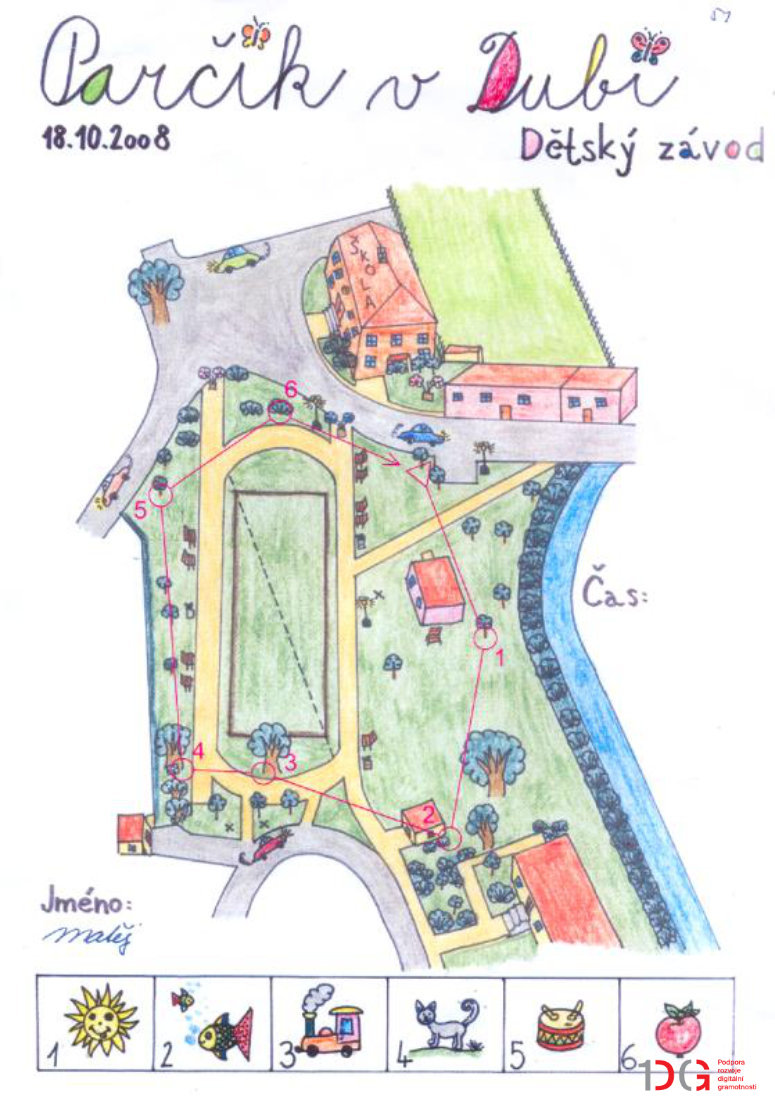 Parčík v Dubí
18.10.2008
Dětský závod
ŠKOLA
6
5
1
Čas:
4
3
2
Jméno:
Matěj
1
2
3
4
5
6
Podpora
rozvoje
digitální
gramotnosti